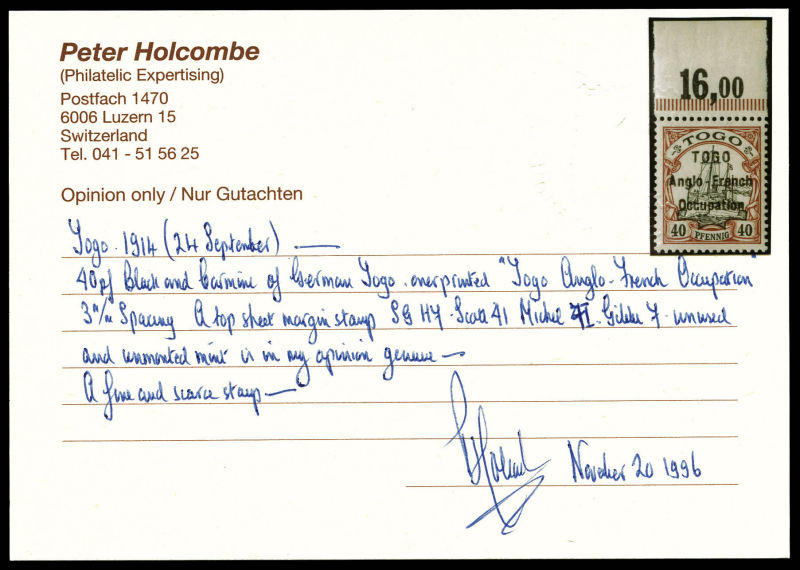 Peter Holcombe
(Philatelic Expertising)
Postfach 1470
6006 Luzern 15
Switzerland
Tel. 041 - 51 56 25
Opinion only / Nur Gutachten
16,00
TOGO
TOGO
Anglo-French
Occupation
40 PFENNIG 40
Togo. 1914 (24 September) —
40pf Black and Carmine of German Togo. overprinted "Togo Anglo-French Occupation"
3 m/m Spacing A top sheet margin stamp SG H7 - Scott 41 Michel I - Gibbs 7 - unused
and unmounted mint is in my opinion genuine —
A fine and scarce stamp —
November 20 1996